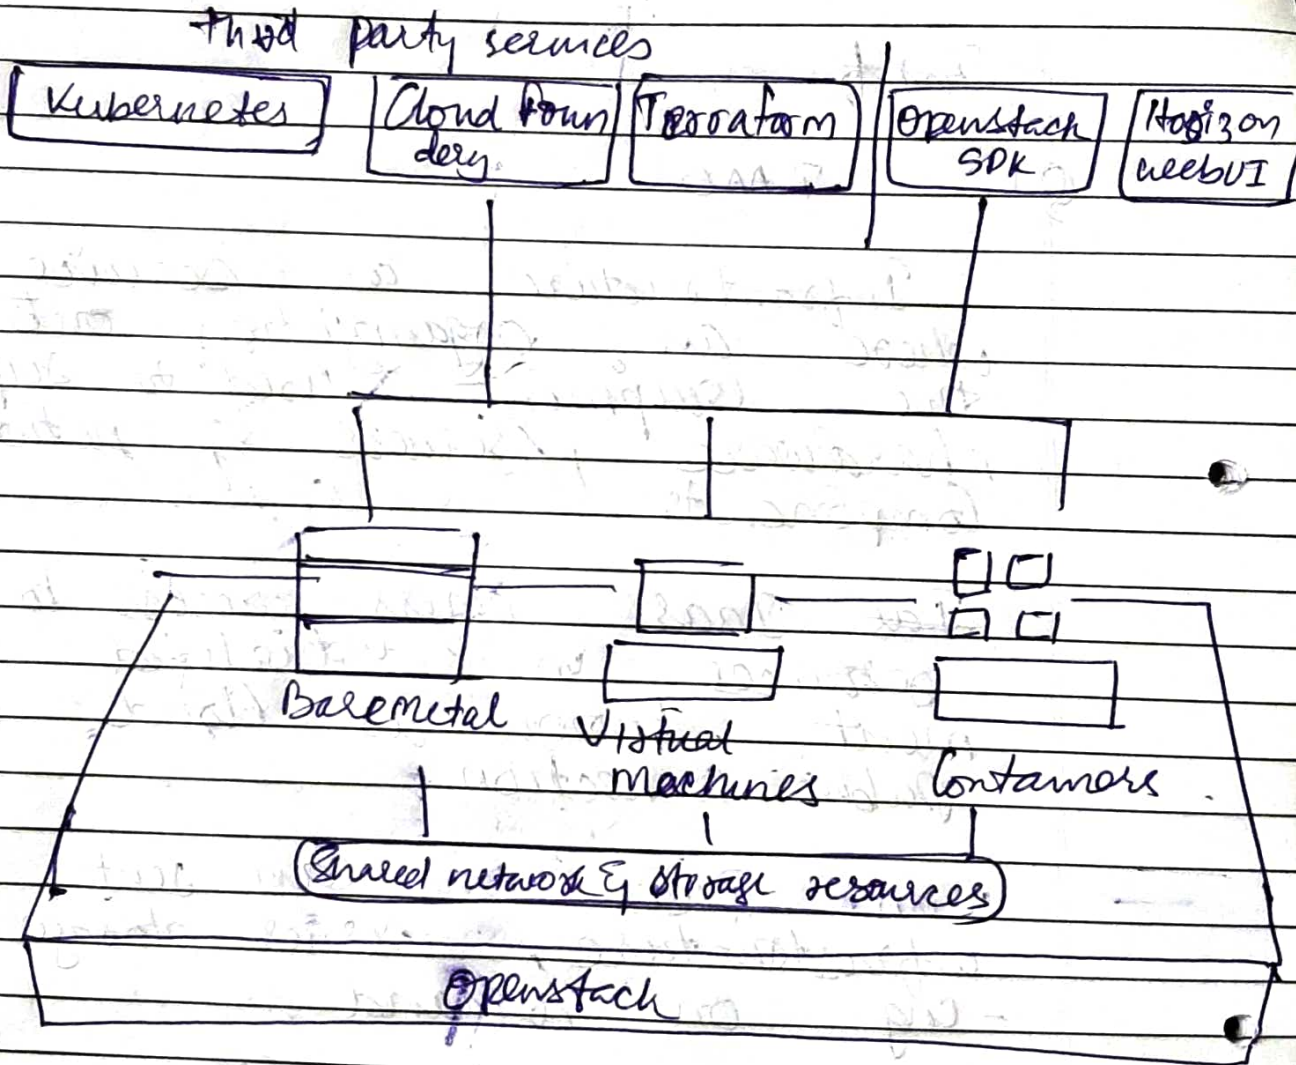 Third party services
Kubernetes
Cloud Foun
dery
Terraform
Openstack
SDK
Horizon
webUI
Baremetal
Virtual
Machines
Containers
Shared network & storage resources
Openstack